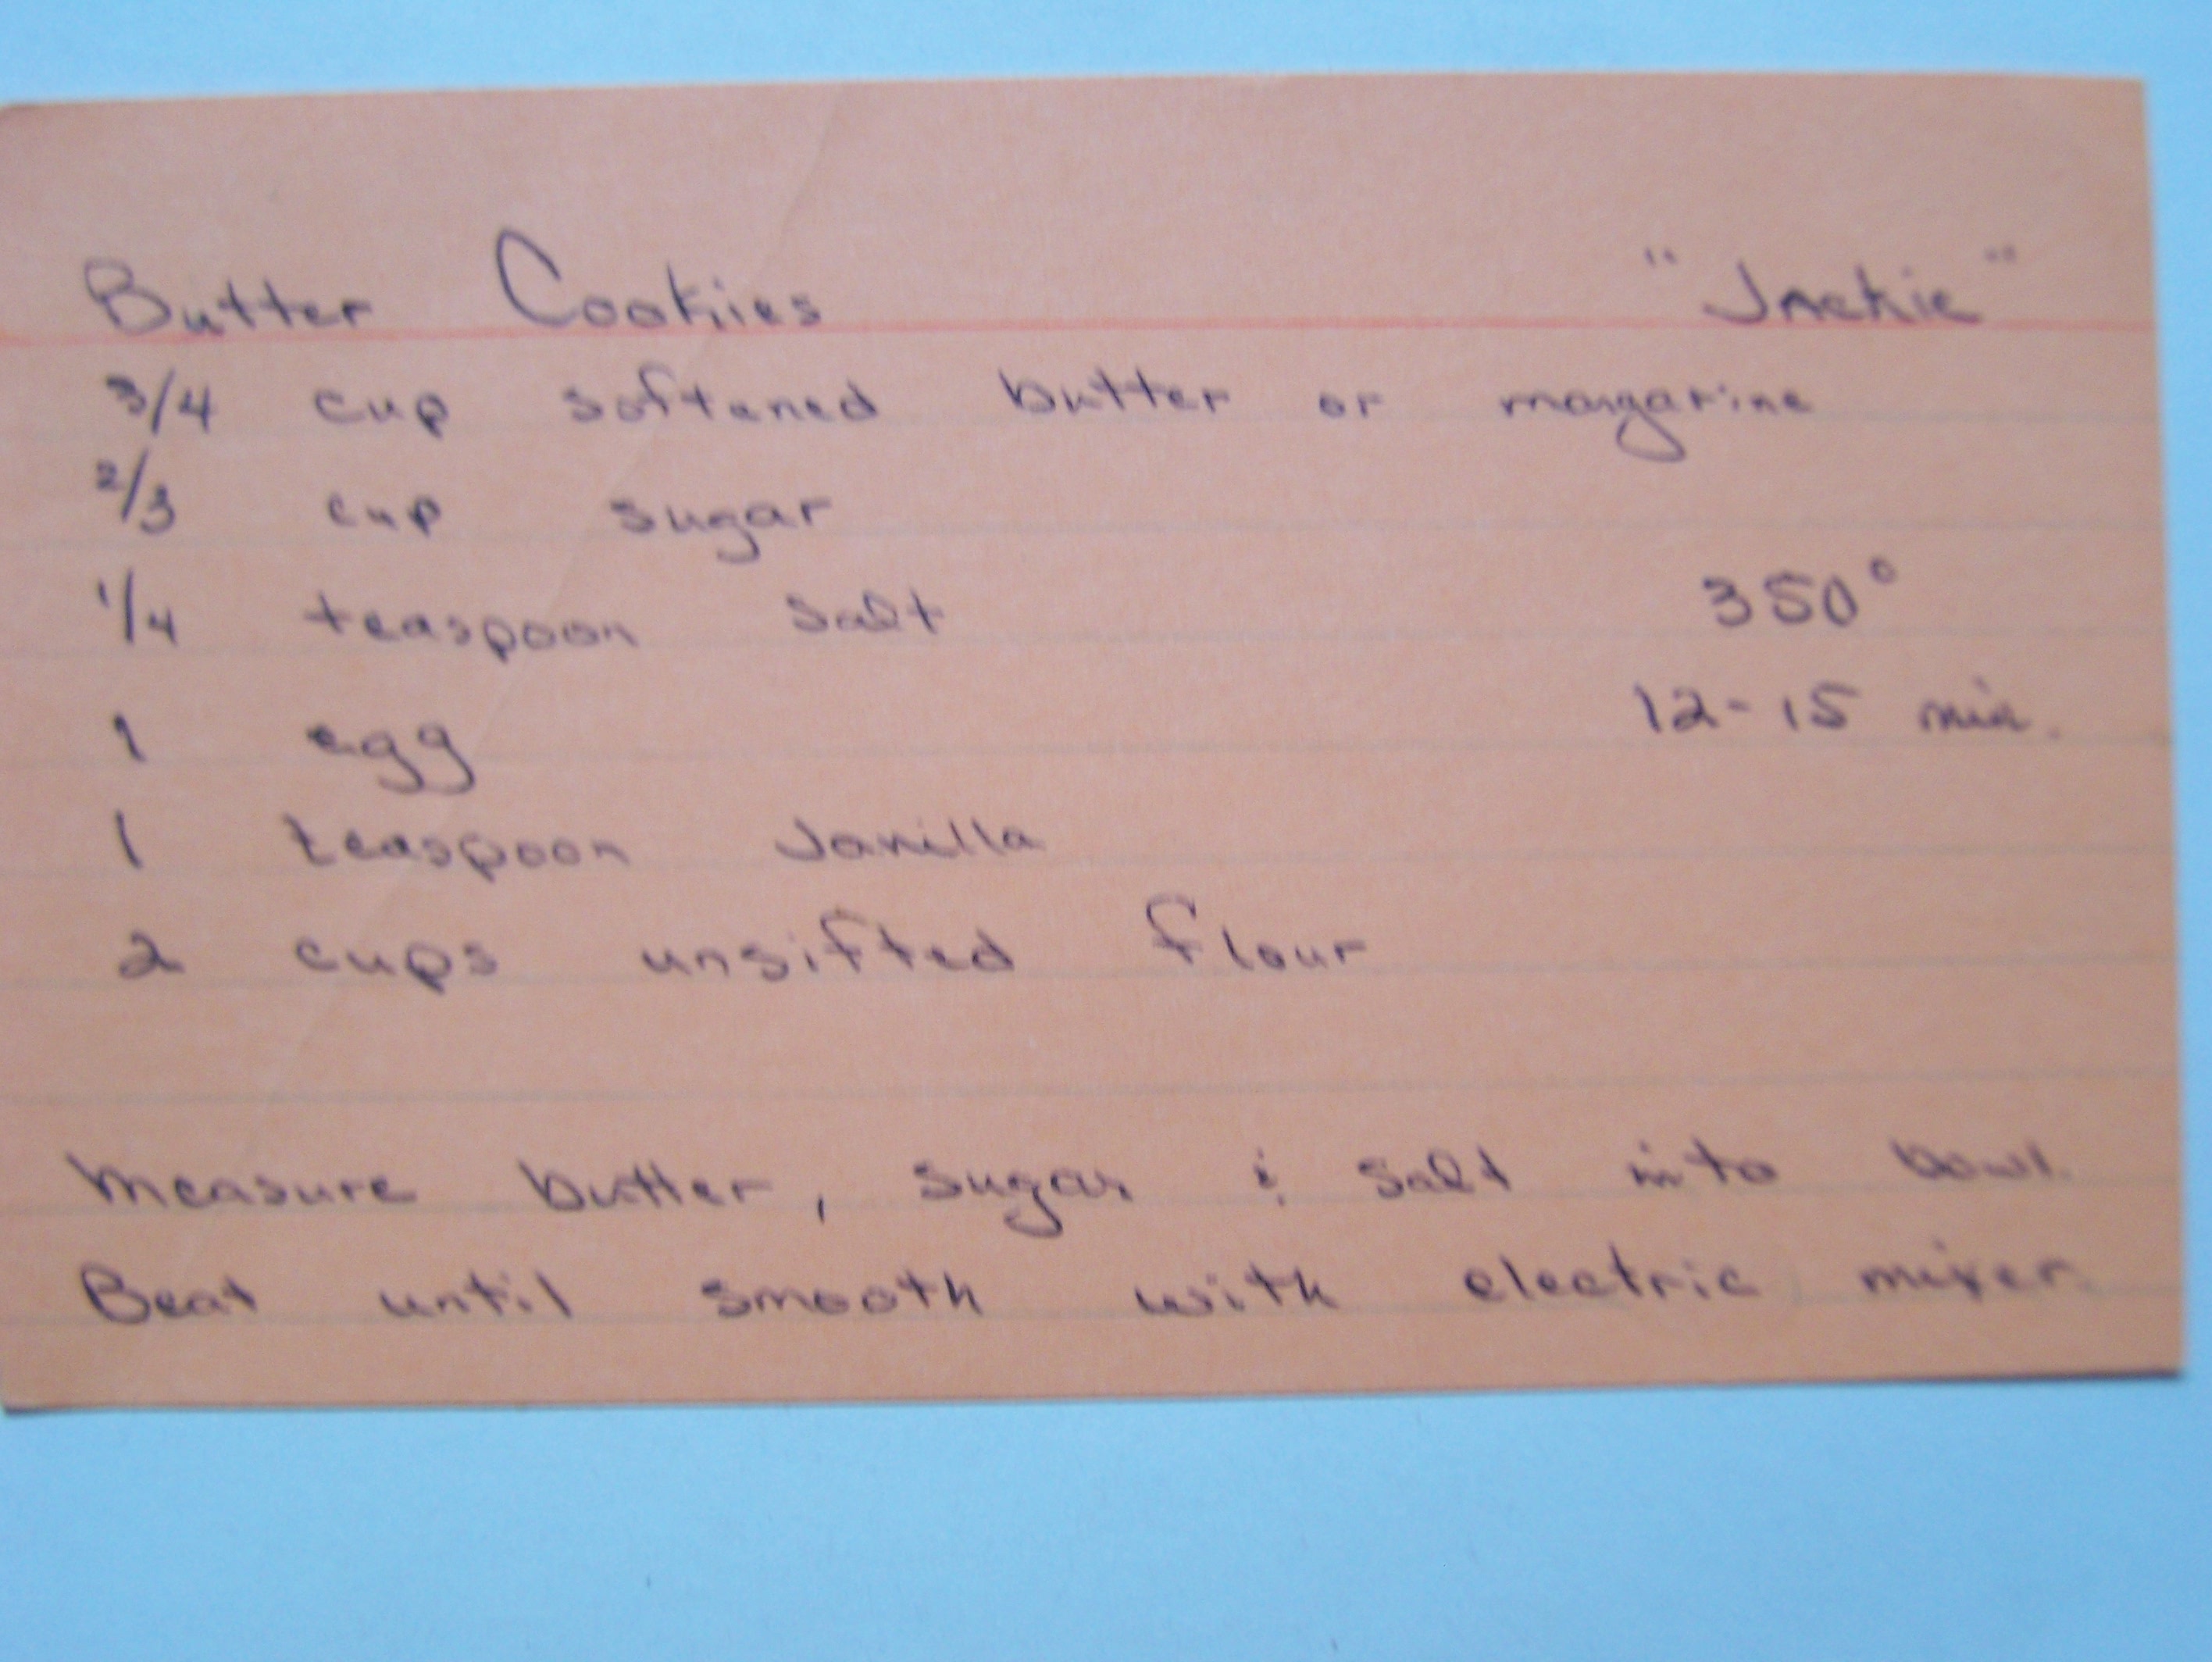 Butter Cookies "Jackie"
3/4 cup softened butter or margarine
2/3 cup sugar
1/4 teaspoon salt 350°
1 egg 12-15 min.
1 teaspoon vanilla
2 cups unsifted flour
Measure butter, sugar & salt into bowl.
Beat until smooth with electric mixer.